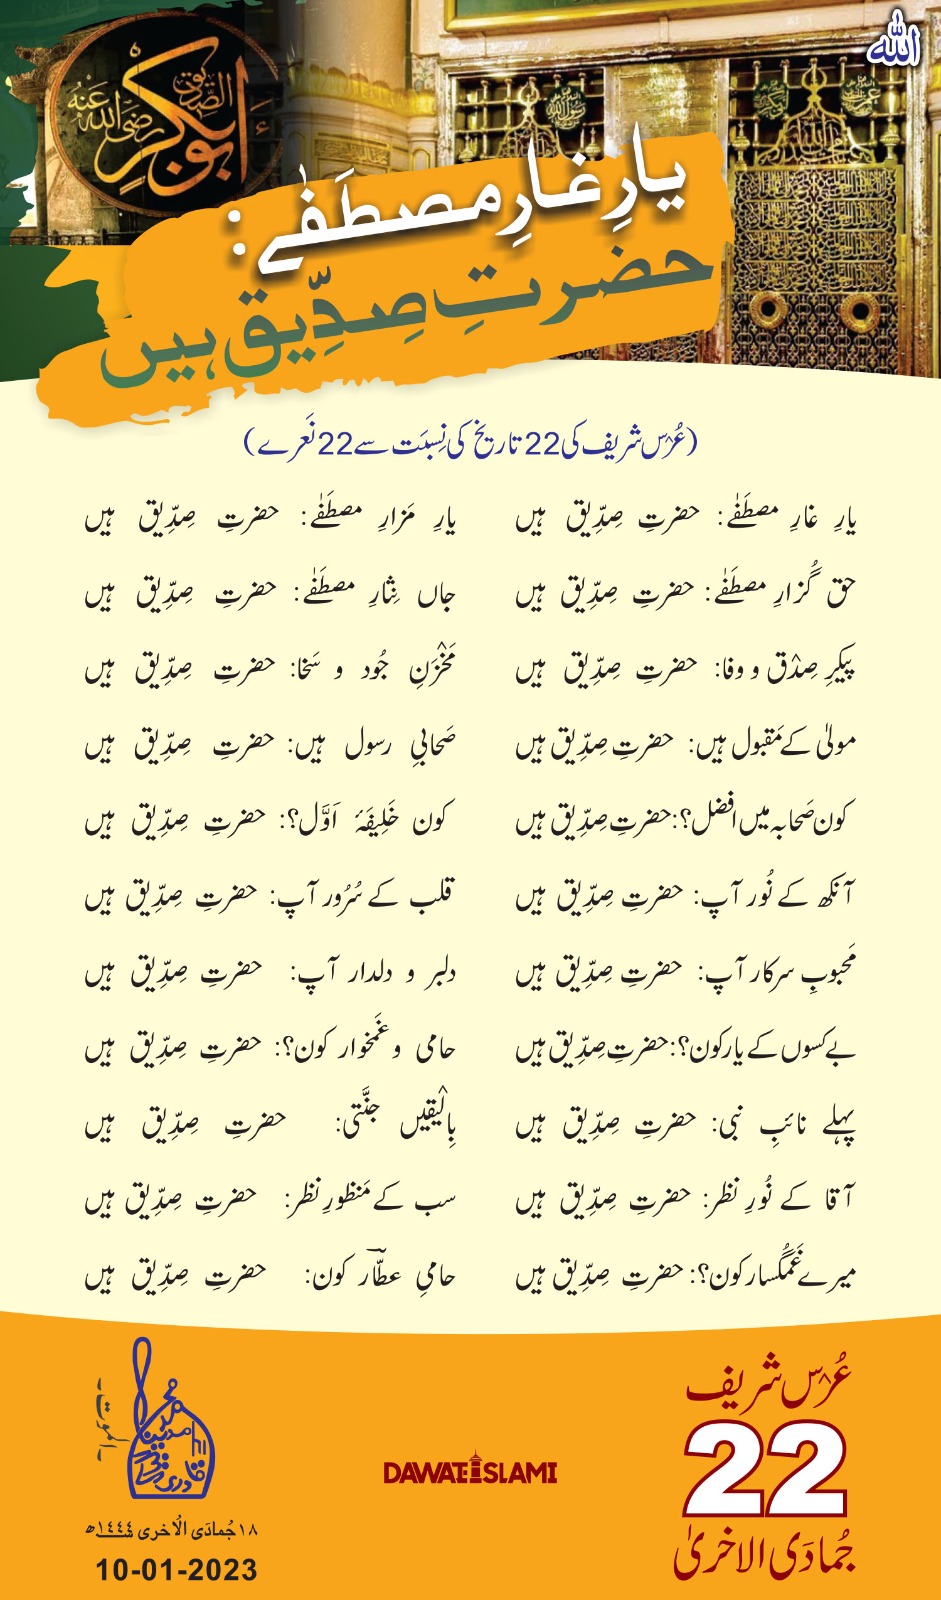 اللہ
ابوبکر الصدیق رضی اللہ عنہ
یارِ غارِ مصطَفٰے:
حضرتِ صِدِّیق ہیں
(عُرْس شریف کی 22 تاریخ کی نِسبَت سے 22 نَعرے)
یارِ غارِ مصطَفٰے: حضرتِ صِدِّیق ہیں
یارِ مَزارِ مصطَفٰے: حضرتِ صِدِّیق ہیں
حق گُزارِ مصطَفٰے: حضرتِ صِدِّیق ہیں
جاں نِثارِ مصطَفٰے: حضرتِ صِدِّیق ہیں
پیکرِ صِدْق و وفا: حضرتِ صِدِّیق ہیں
مَخْزَنِ جُود و سَخا: حضرتِ صِدِّیق ہیں
مولیٰ کے مَقبول ہیں: حضرتِ صِدِّیق ہیں
صَحابیِ رسول ہیں: حضرتِ صِدِّیق ہیں
کون صَحابہ میں افضل؟: حضرتِ صِدِّیق ہیں
کون خَلِیفَۂ اَوَّل؟: حضرتِ صِدِّیق ہیں
آنکھ کے نُور آپ: حضرتِ صِدِّیق ہیں
قلب کے سُرُور آپ: حضرتِ صِدِّیق ہیں
مَحبوبِ سرکار آپ: حضرتِ صِدِّیق ہیں
دلبر و دلدار آپ: حضرتِ صِدِّیق ہیں
بے کسوں کے یار کون؟: حضرتِ صِدِّیق ہیں
حامی و غَمخوار کون؟: حضرتِ صِدِّیق ہیں
پہلے نائبِ نبی: حضرتِ صِدِّیق ہیں
بِالْیَقِیں جنَّتی: حضرتِ صِدِّیق ہیں
آقا کے نُورِ نظر: حضرتِ صِدِّیق ہیں
سب کے مَنظورِ نظر: حضرتِ صِدِّیق ہیں
میرے غَمگُسار کون؟: حضرتِ صِدِّیق ہیں
حامیِ عطّار کون: حضرتِ صِدِّیق ہیں
عُرْس شریف
22
جُمادَی الاخریٰ
DAWATEISLAMI
الموت
١٨ جُمادَی الْاُخری ١٤٤٤ھ
10-01-2023